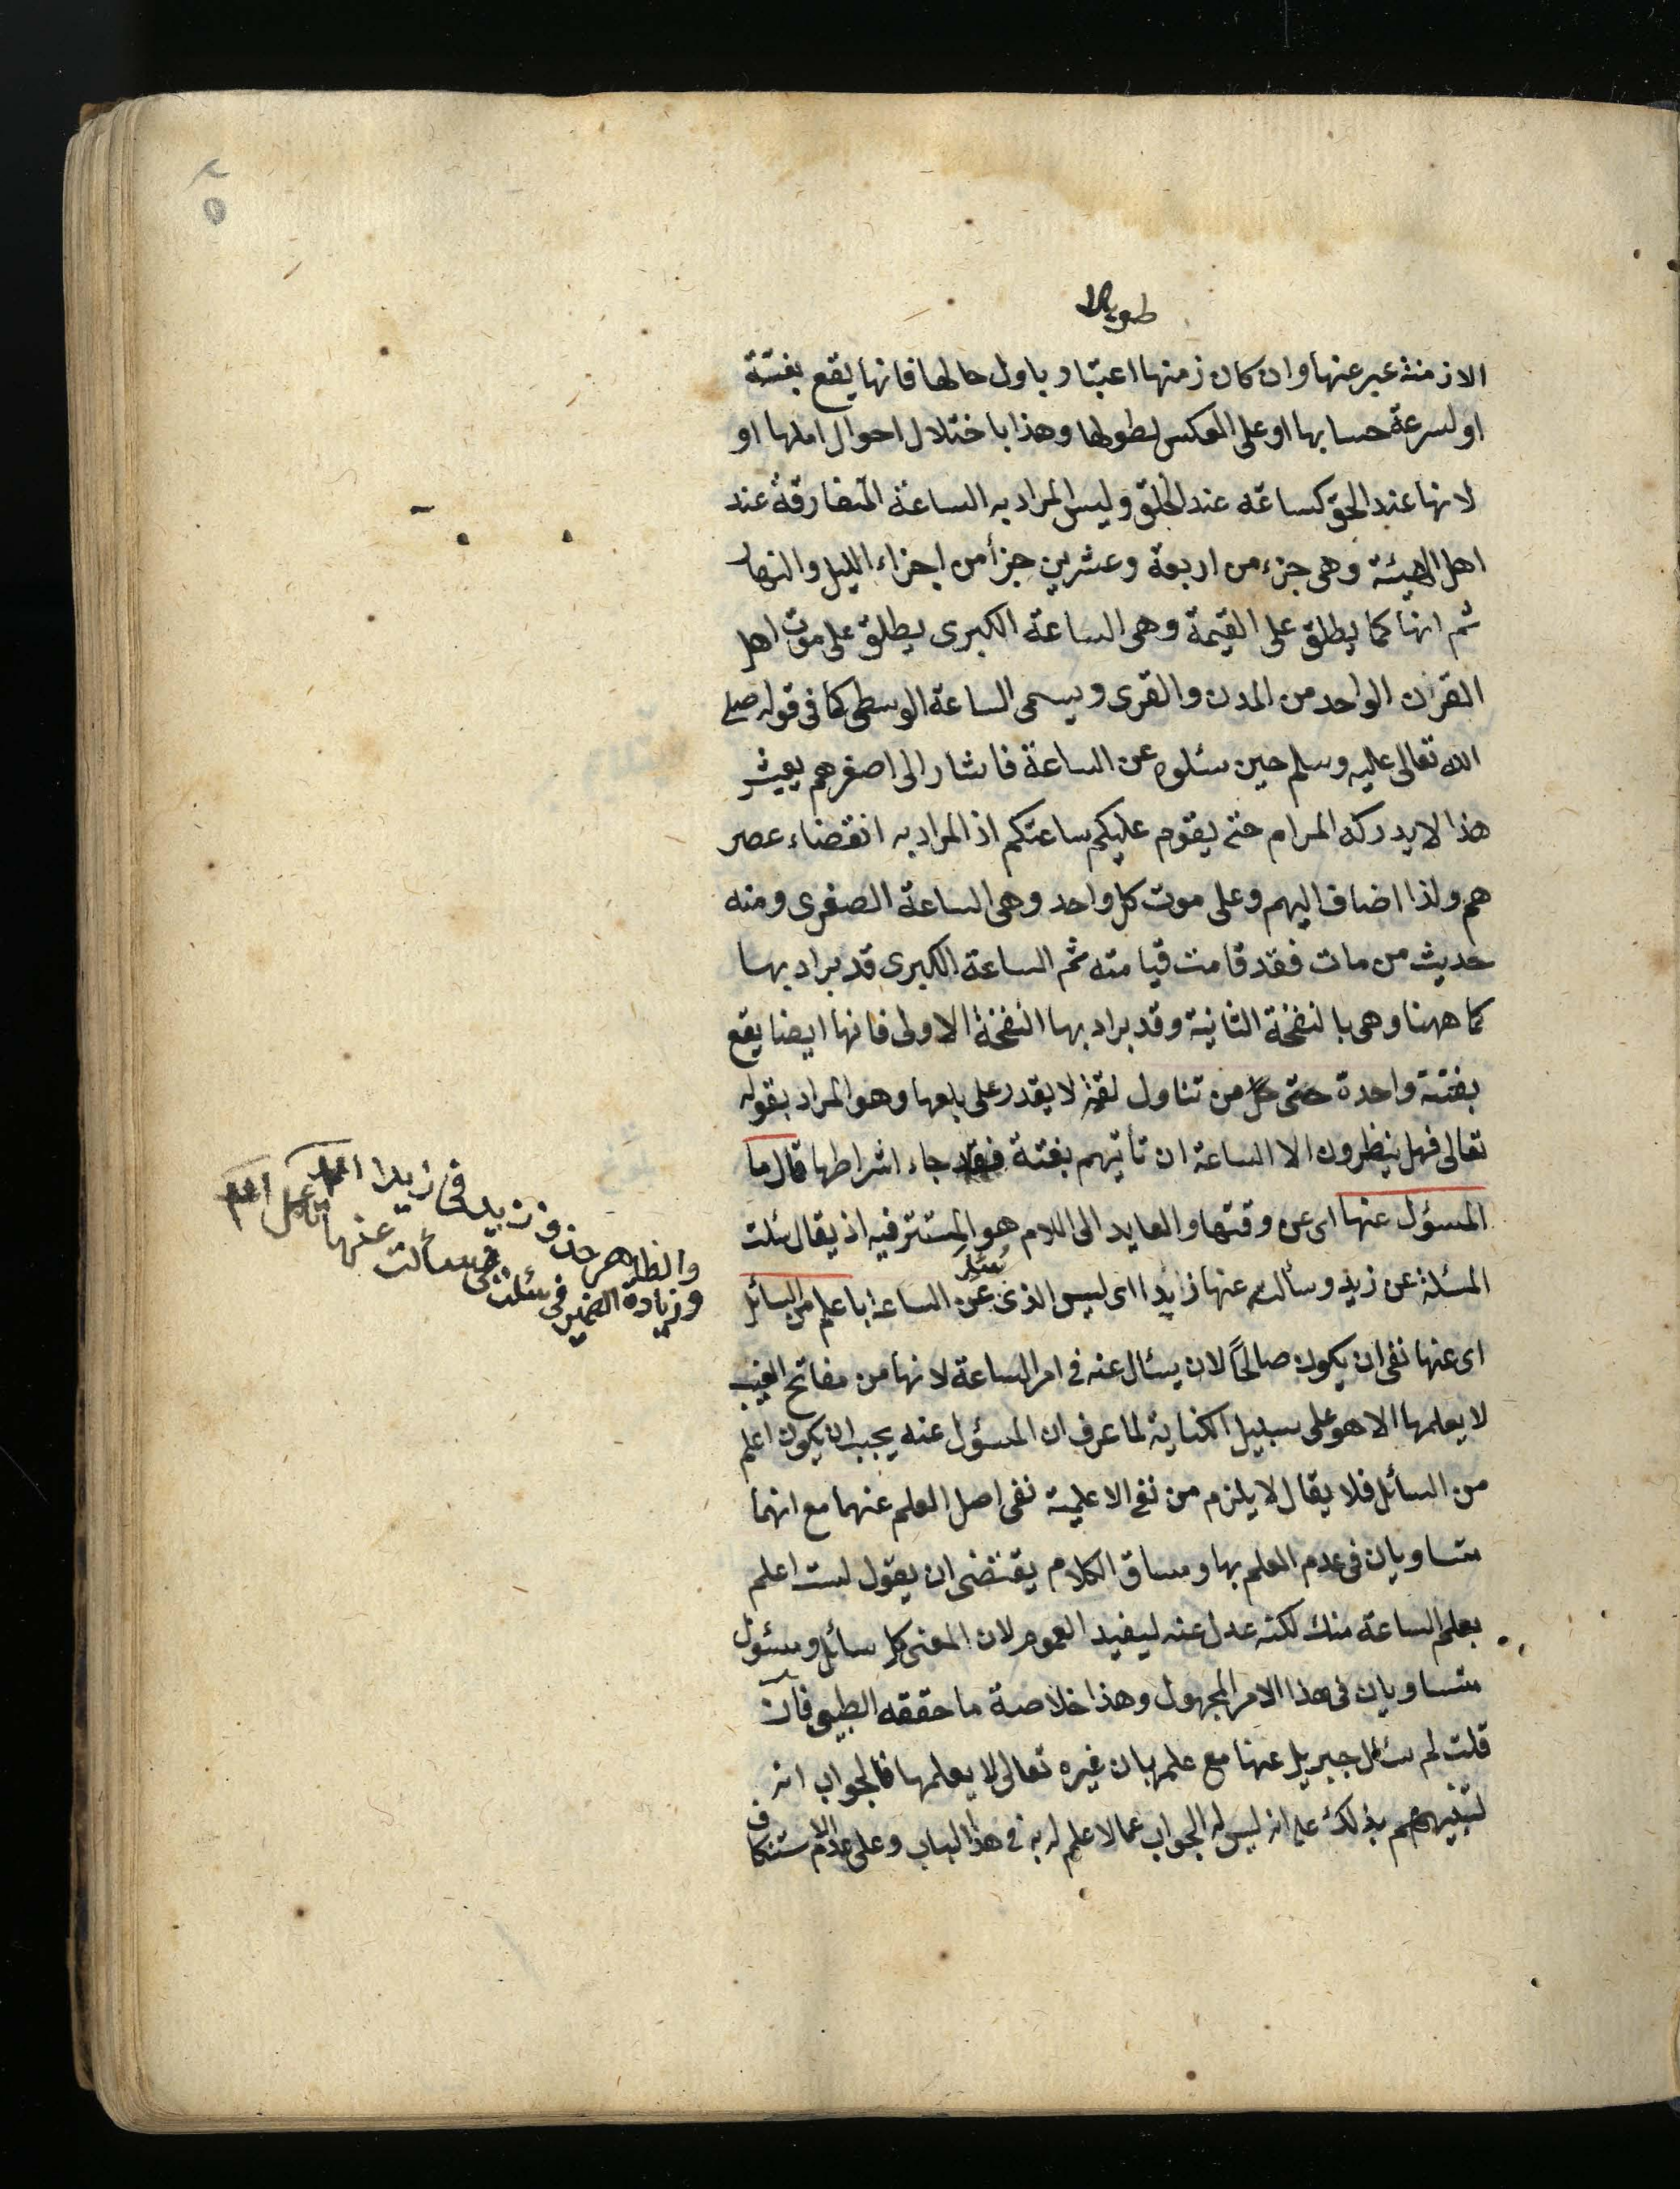 طويلا
الازمنة عبر عنها وان كان زمنها اعتبارا باول حالها فانها يقع بغتة
او لسرعة حسابها او على العكس لطولها وهذا باختلال احوال اهلها او
لانها عند الحق كساعة عند الخلق وليس المراد به الساعة المتعارفة عند
اهل الهيئة وهى جزء من اربعة وعشرين جزأ من اجزاء الليل والنهار
ثم انها كما يطلق على القيمة وهى الساعة الكبرى يطلق على موت اهل
القرن الواحد من المدن والقرى ويسمى الساعة الوسطى كما فى قوله صلى
الله تعالى عليه وسلم حين سئلوه عن الساعة فاشار الى اصغرهم يعيش
هذا لا يدركه الهرام حتى يقوم عليكم ساعتكم اذ المراد به انقضاء عصر
هم ولذا اضاف اليهم وعلى موت كل واحد وهى الساعة الصغرى ومنه
حديث من مات فقد قامت قيامته ثم الساعة الكبرى قد يراد بها
كما ههنا وهى بالنفخة الثانية وقد يراد بها النفخة الاولى فانها ايضا يقع
بغتة واحدة حتى كل من تناول لقمة لا يقدر على بلعها وهو المراد بقوله
تعالى فهل ينظرون الا الساعة ان تأتيهم بغتة فقد جاء اشراطها قال ما
المسؤل عنها اى عن وقتها والعايد الى اللام هو المستتر فيه اذ يقال سئلت
المسئلة عن زيد وسألته عنها زايدا اى ليس الذى سئل عن الساعة باعلم من السائل
اى عنها نفى ان يكون صالحًا لان يسئال عنه فى امر الساعة لانها من مفاتح الغيب
لا يعلمها الا هو على سبيل الكناية لما عرف ان المسؤل عنه يجب ان يكون اعلم
من السائل فلا يقال لا يلزم من نفى الاعلمية نفى اصل العلم عنهما مع انهما
متساويان فى عدم العلم بها ومساق الكلام يقتضى ان يقول لست اعلم
بعلم الساعة منك لكنه عدل عنه ليفيد العموم لان المعنى كل سائل ومسئول
متساويان فى هذا الامر المجهول وهذا خلاصة ما حققه الطيبى فان
قلت لم سئال جبريل عنها مع علمه بان غيره تعالى لا يعلمها فالجواب انه
لتنبيههم بذلك على انه ليس له الجواب عما لا علم له به فى هذا الباب وعلى عدم الاستنكاف
والظاهر حذف زيد فى زيدا
وزيادة الضمير فى سئلت فى سألت عنها